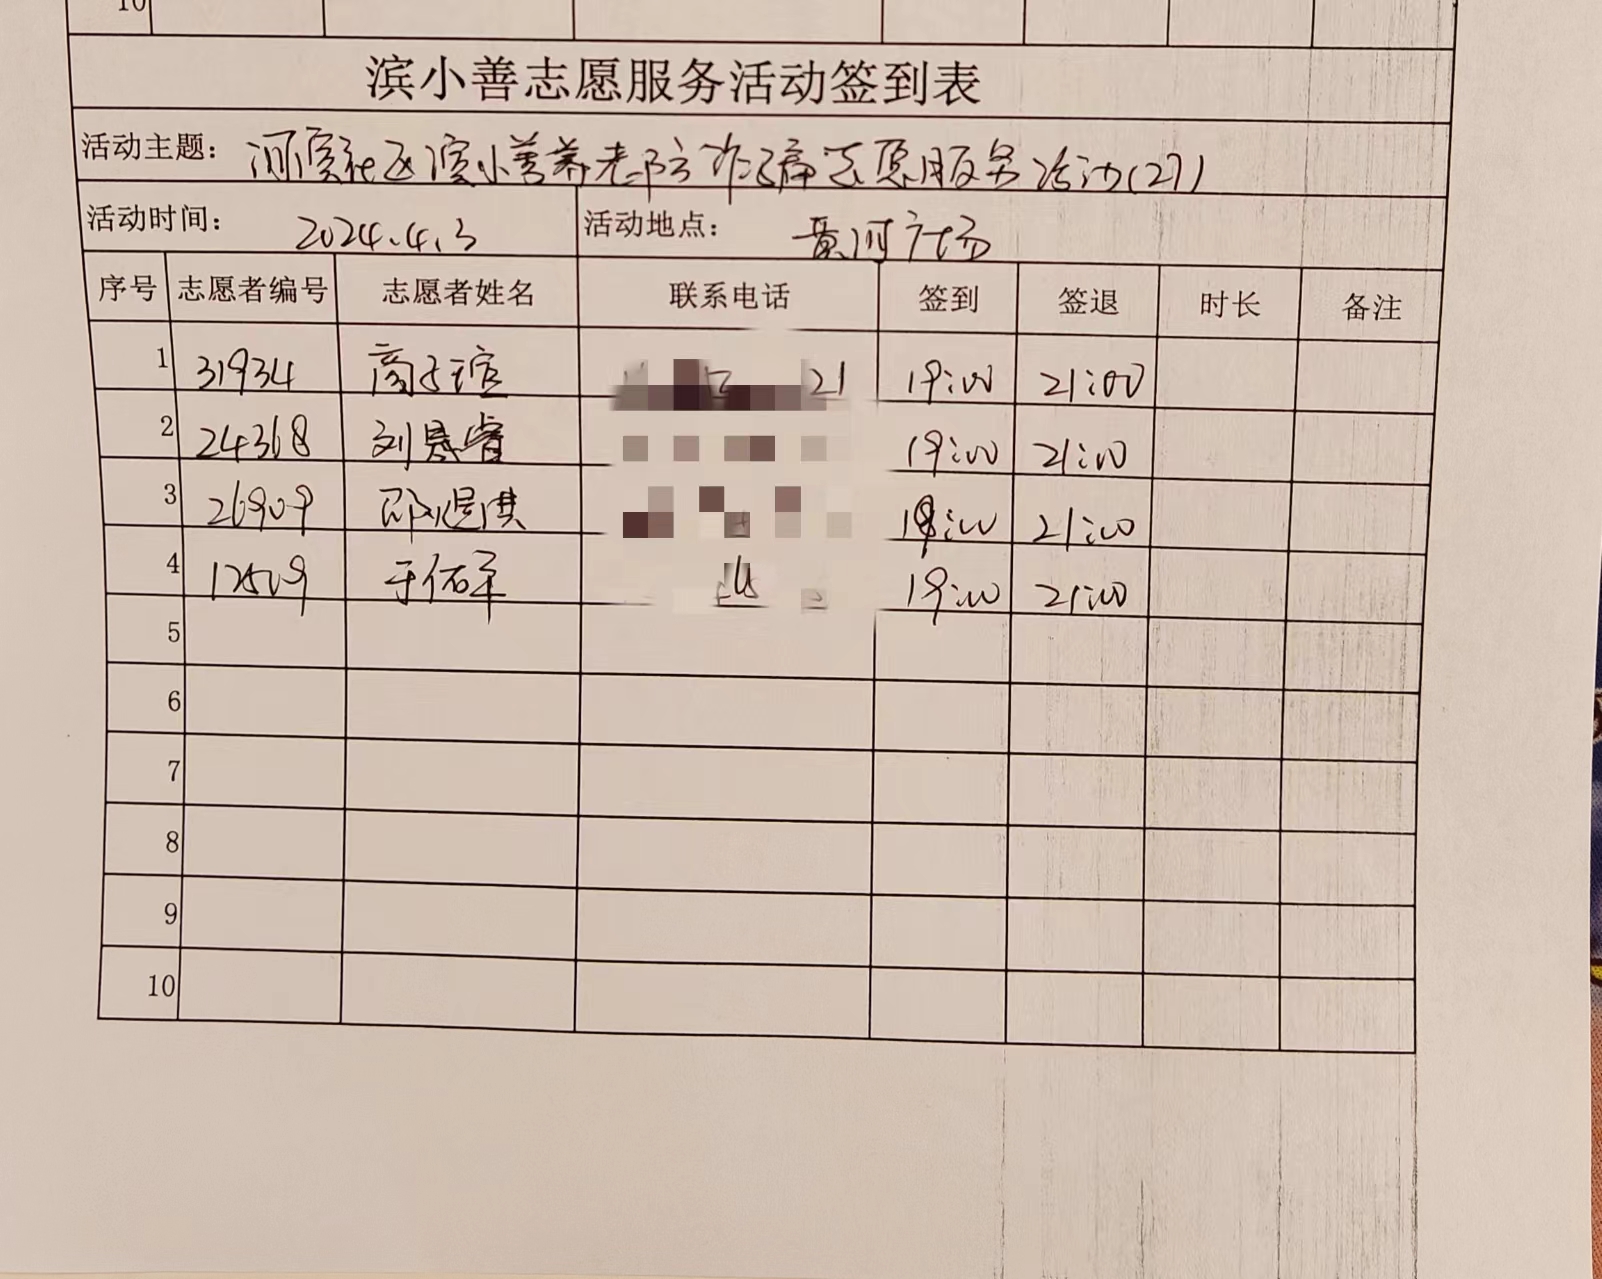 10
滨小善志愿服务活动签到表
活动主题: 河滨社区滨小善养老防诈骗志愿服务活动(27)
活动时间: 2024.4.3 活动地点: 黄河广场
序号 志愿者编号 志愿者姓名 联系电话 签到 签退 时长 备注
1 31934 商子瑄 21 19:00 21:00
2 24368 刘晨睿 19:00 21:00
3 26909 19:00 21:00
4 17509 于佑军 19:00 21:00
5
6
7
8
9
10